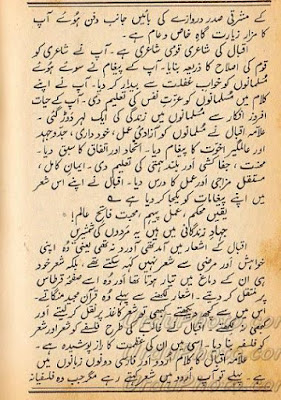 کے مشرقی صدر دروازے کی بائیں جانب دفن ہوئے آپ
کا مزار زیارت گاہِ خاص و عام ہے۔
اقبال کی شاعری قومی شاعری ہے۔ آپ نے شاعری کو
قوم کی اصلاح کا ذریعہ بنایا۔ آپ کے پیغام نے سوئے ہوئے
مسلمانوں کو خوابِ غفلت سے بیدار کر دیا۔ آپ نے اپنے
کلام میں مسلمانوں کو عزتِ نفس کی تعلیم دی۔ آپ کے حیات
افروز افکار سے مسلمانوں میں زندگی کی ایک لہر دوڑ گئی۔
علامہ اقبال نے مسلمانوں کو آزادیِ عمل، خودداری، جدوجہد
اور عالمگیر اخوت کا پیغام دیا۔ اتحاد اور اتفاق کا سبق دیا۔
محنت، جفاکشی اور بلند ہمتی کی تعلیم دی۔ ایمانِ کامل،
مستقل مزاجی اور عمل کا درس دیا۔ اقبال نے اپنے اس شعر
میں اپنے پیغامات کو یکجا کر دیا ہے
یقیں محکم، عمل پیہم، محبت فاتحِ عالم!
جہادِ زندگانی میں ہیں یہ مردوں کی شمشیریں
اقبال کے اشعار میں آمد تھی آورد نہ تھی یعنی وہ اپنی
خواہش اور مرضی سے شعر نہیں کہہ سکتے تھے، بلکہ شعر خود
ہی ان کے دماغ میں تیار ہوتا تھا اور وہ اسے صفحۂ قرطاس
پر منتقل کر دیتے۔ اشعار لکھنے سے پہلے وہ قرآن مجید منگاتے
اس میں سے کچھ دیکھتے، کبھی تو شعر کاغذ پر نقل کر لیتے اور
کبھی نہ لکھتے۔ اقبال کے کلام میں طرح فلسفے کو شعر اور شعر
کو فلسفہ بنا دیا۔ اسی میں ان کی عظمت کا راز پوشیدہ ہے۔
علامہ اقبال کا کلام اردو اور فارسی دونوں زبانوں میں
ہے۔ پہلے تو آپ اردو میں شعر کہتے رہے مگر جب وہ فلسفیانہ